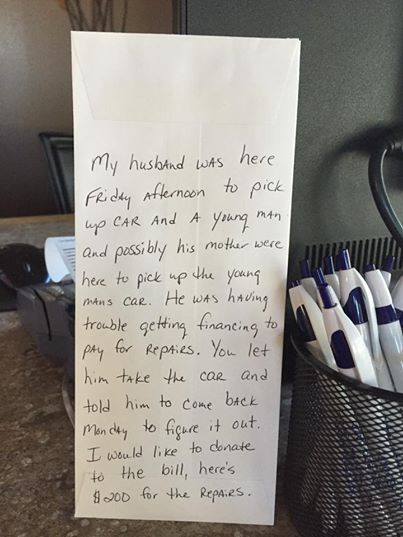 My husband was here
Friday afternoon to pick
up car and a young man
and possibly his mother were
here to pick up the young
mans car. He was having
trouble getting financing to
pay for repairs. You let
him take the car and
told him to come back
Monday to figure it out.
I would like to donate
to the bill, here's
$200 for the repairs.